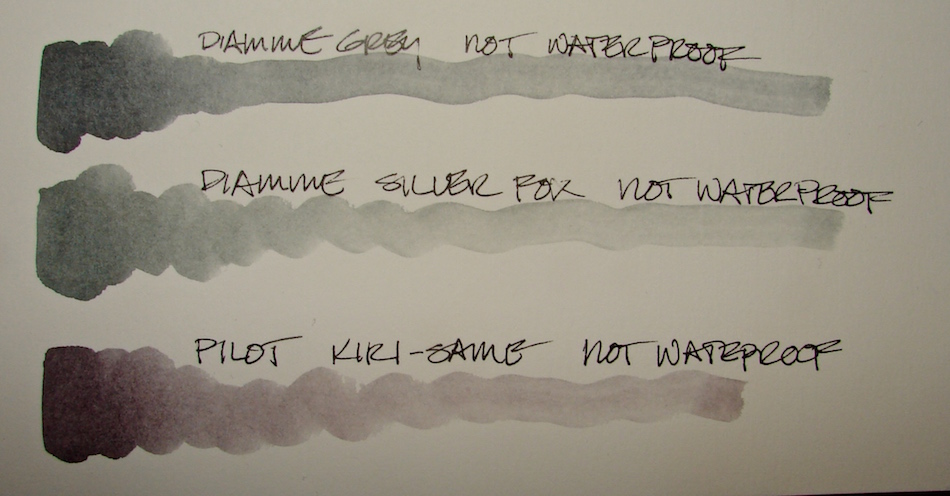 DIAMINE GREY NOT WATERPROOF
DIAMINE SILVER FOX NOT WATERPROOF
PILOT KIRI-SAME NOT WATERPROOF